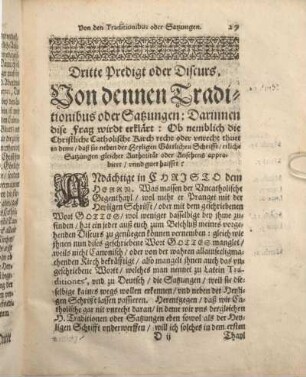 Von den Traditionibus oder Satzungen. 29
Dritte Predigt oder Discurs,
Von dennen Tradi-
tionibus oder Satzungen: Darinnen
dise Frag wirdt erklärt: Ob nemblich die
Christliche Catholische Kirch recht oder unrecht thuet
in deme / daß sie neben der Heyligen Göttlichen Schrifft / etliche
Satzungen gleicher Authoritet oder Ansehens appro-
biert / unnd gut haisset?
ANdächtige in CHRISTO dem
HERRN. Was massen der Uncatholische
Gegenthayl / wol mehr er Prange mit der
Heyligen Schrifft / oder mit dem geschribenen
Wort GOTTES / weil weniger dasselbige bey ihme zu-
finden / hat ein jeder auß euch zum Beschluß meines vorge-
henden Discurs zu genügen können vernemben: gleich wie
ihnen nun dises geschribene Wort GOTTES manglet /
weils nicht Canonisch / oder von der wahren allainseligma-
chenden Kirch bekräfftiget / also manglet ihnen auch das un-
geschribene Wort / welches man nennet zu Latein Tradi-
tiones, und zu Deutsch / die Satzungen / weil sie die-
selbige kaines wegs wöllen erkennen / und neben der Heyli-
gen Schrifft lassen passieren. Herentgegen / daß wir Ca-
tholische gar nit unrecht daran / in deme wir uns dergleichen
H. Traditionen oder Satzungen eben sowol als der Hey-
ligen Schrifft underwerffen / will ich solches in dem ersten
D ij Thayl